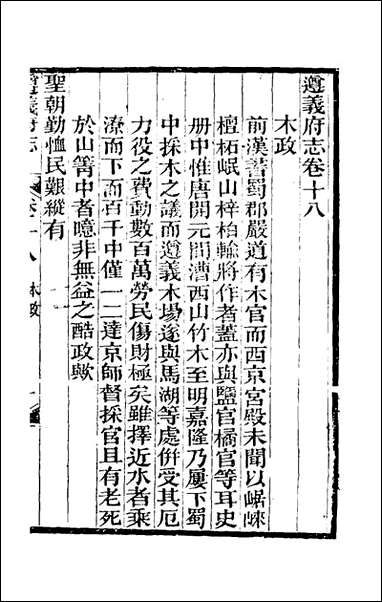 遵義府志卷十八
木政
前漢書蜀郡嚴道有木官而西京宮殿未聞以崌崍
檀柘岷山梓柏輸將作者蓋亦與鹽官橘官等耳史
册中惟唐開元間漕西山竹木至明嘉隆乃屢下蜀
中採木之議而遵義木場遂與馬湖等處併受其厄
力役之費動數百萬勞民傷財極矣雖擇近水者乘
潦而下而百千中僅一二達京師督採官且有老死
於山箐中者噫非無益之酷政歟
聖朝勤恤民艱縱有
遵義府志 卷十八 木政 一